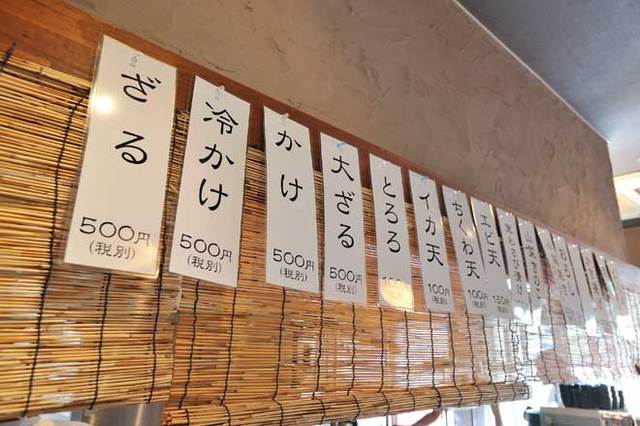 ざる
500円
(税別)
冷かけ
500円
(税別)
かけ
500円
(税別)
大ざる
500円
(税別)
とろろ
100円
イカ天
100円
(税別)
ちくわ天
100円
(税別)
エビ天
150円
(税別)